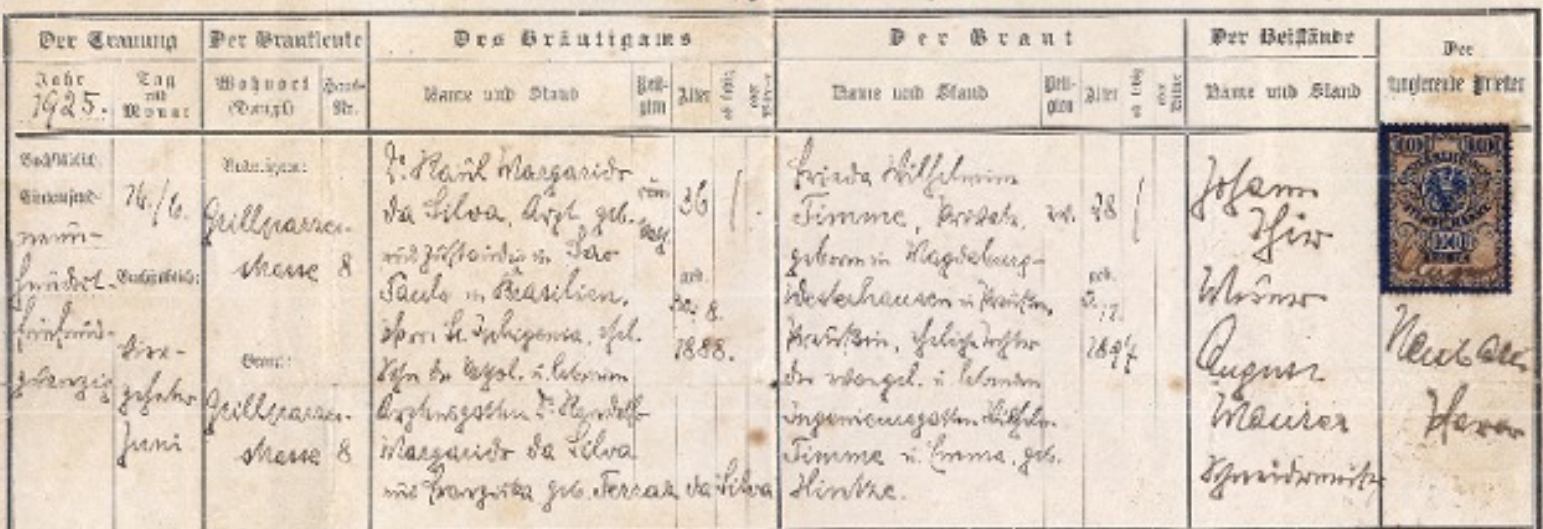 Der Trauung
Jahr
1925.
Tag
und
Monat
Der Brautleute
Wohnort
Haus-
Nr.
Des Bräutigams
Name und Stand
Reli-
gion
Alter
ob ledig
oder
Der Braut
Name und Stand
Reli-
gion
Alter
ob ledig
oder
Witwe
Der Beistände
Name und Stand
Der
fungierende Priester
neun-
hundert-
fünfund-
zwanzig
Buchstäblich:
Vier-
zehnter
Juni
Bräutigam:
Grillparzer-
strasse 8
Braut:
Grillparzer-
strasse 8
Dr. Raúl Margarido
da Silva, Arzt, geb.
und zuständig in São
Paulo in Brasilien,
Pfarre St. Iphigenia, ehel.
Sohn der kathol. u. lebenden
Arztensgatten Dr. Randolfo
Margarido da Silva
und Franziska geb. Ferraz da Silva
36
geb.
20. 8.
1888.
Frieda Wilhelmine
Timme, Private,
geboren in Magdeburg-
Westerhausen in Preußen,
Preußin, eheliche Tochter
der evangel. u. lebenden
Ingenieursgatten Wilhelm
Timme u. Emma, geb.
Hintze.
ev.
28
geb.
1897
Johann
Thir
Mesner
August
Maurer
Schneidermeister